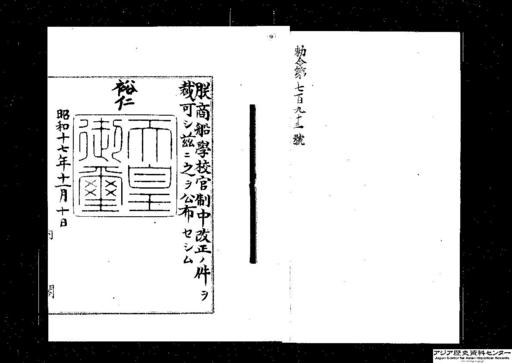 勅令第七百九十一號
朕商船學校官制中改正ノ件ヲ
裁可シ茲ニ之ヲ公布セシム
裕仁
天皇
御璽
昭和十七年十一月十日
内閣
アジア歴史資料センター
Japan Center for Asian Historical Records